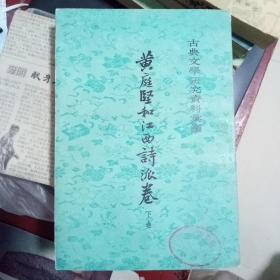 古典文學研究資料彙編
黄庭堅和江西詩派卷
(下卷)